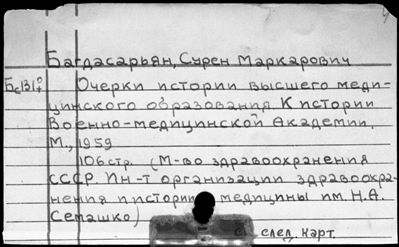 Багдасарьян, Сурен Маркарович
Очерки истории высшего меди-
цинского образования. К истории
Военно-медицинской Академии.
М., 1959
106 стр. (М-во здравоохранения
СССР. Ин-т организации здравоохра-
нения и истории медицины им. Н.А.
Семашко)
см. след. карт.